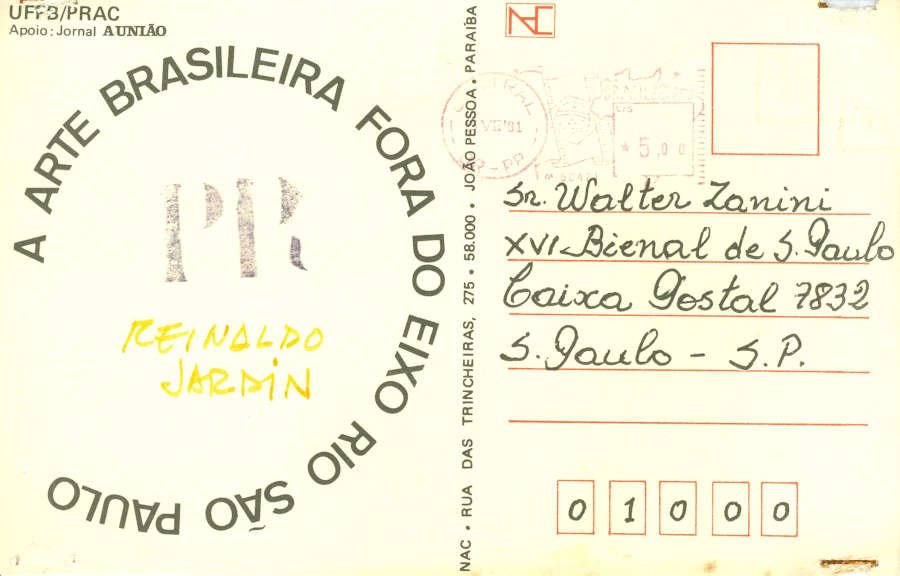 UFPB/PRAC
Apoio: Jornal A UNIÃO
A ARTE BRASILEIRA FORA DO EIXO RIO SÃO PAULO
PR
REINALDO
JARDIN
NAC • RUA DAS TRINCHEIRAS, 275 • 58.000 • JOÃO PESSOA • PARAÍBA
VII '81
* 5,00
Sr. Walter Zanini
XVI Bienal de S. Paulo
Caixa Postal 7832
S. Paulo - S.P.
0 1 0 0 0